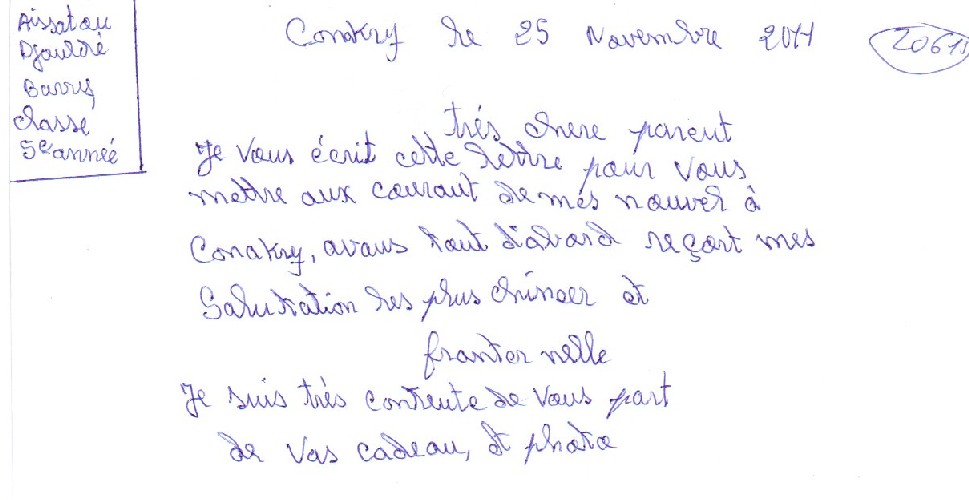 Aissatou
Djouldé
Barry
Classe
5e année
Conakry le 25 Novembre 2011
très chere parent
Je vous écrit cette lettre pour vous
mettre aux courant de mes nouvel à
Conakry, avans tout d'abord reçoit mes
Salutation les plus chinoer et
franter nelle
Je suis très contente de vous part
de vos cadeau, et photo